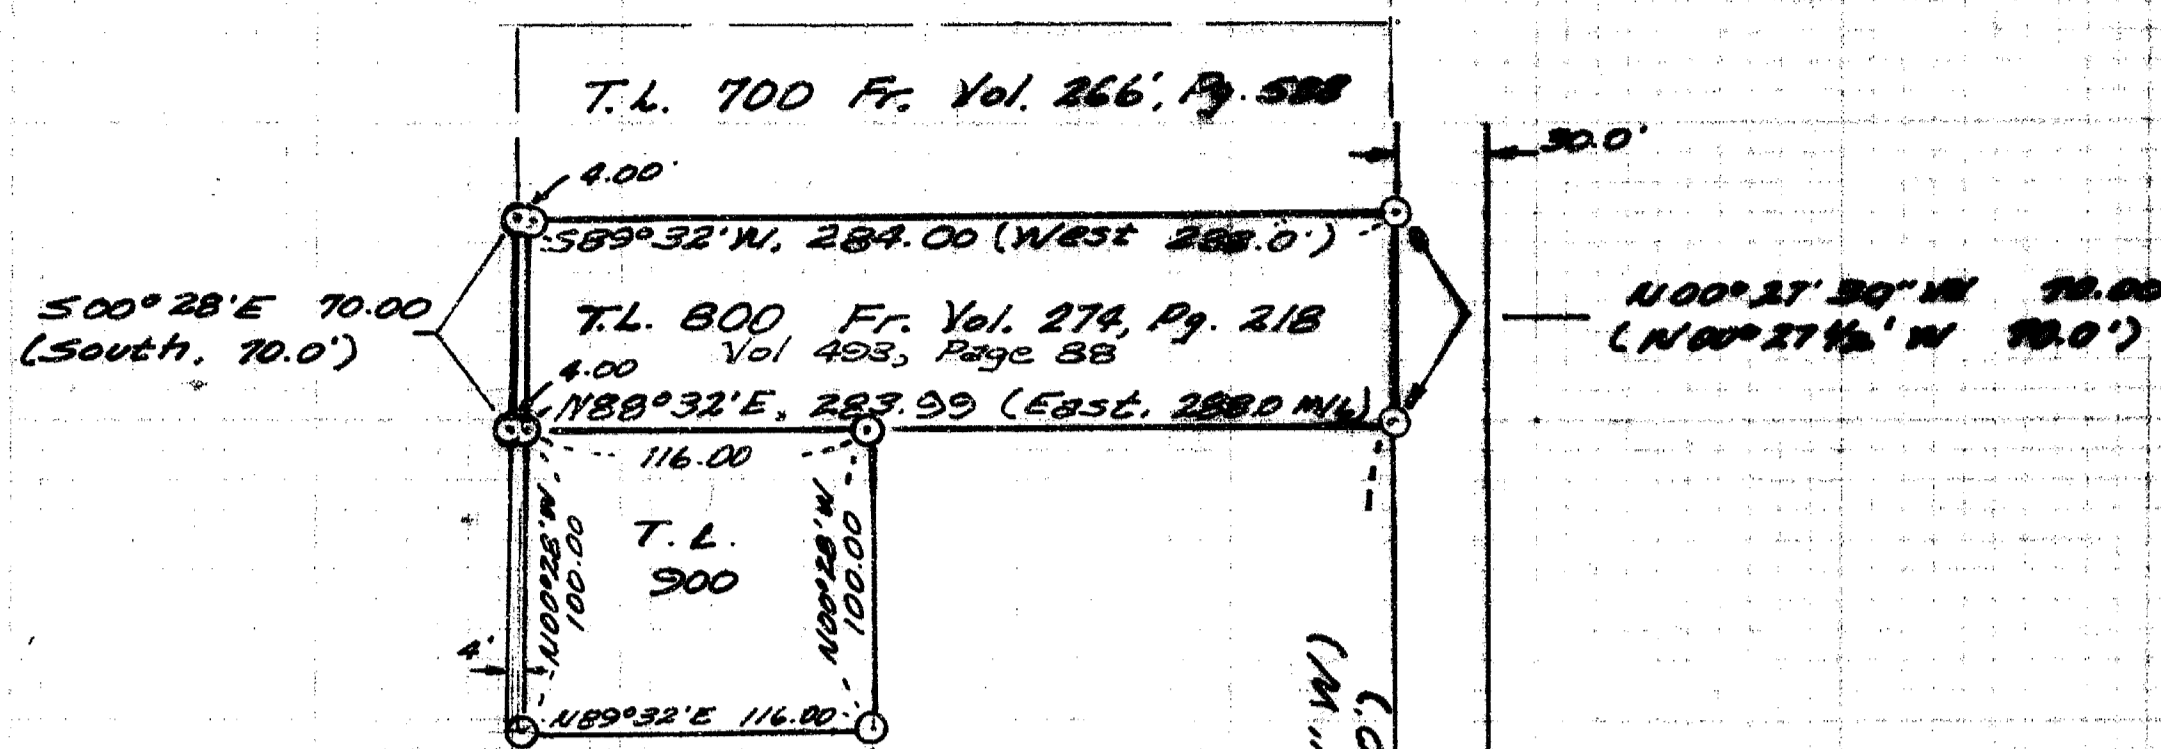 T.L. 700 Fr. Vol. 266', Pg. 588
30.0'
4.00'
S89°32'W, 284.00 (West 288.0')
S00°28'E 70.00
(South, 70.0')
T.L. 800 Fr. Vol. 274, Pg. 218
Vol 493, Page 88
N00°27'30"W 70.00
(N00°27½'W 70.0')
4.00
N88°32'E, 283.99 (East. 288.0 M/L)
116.00
N00°28'W
100.00
T.L.
900
N00°28'W
100.00
4'
N89°32'E 116.00